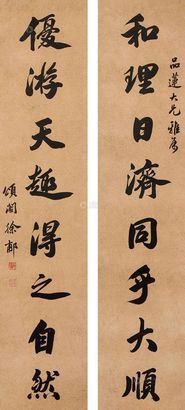 品蓮大兄雅屬
和理日濟同乎大順
優游天趣得之自然
頌閣徐郙